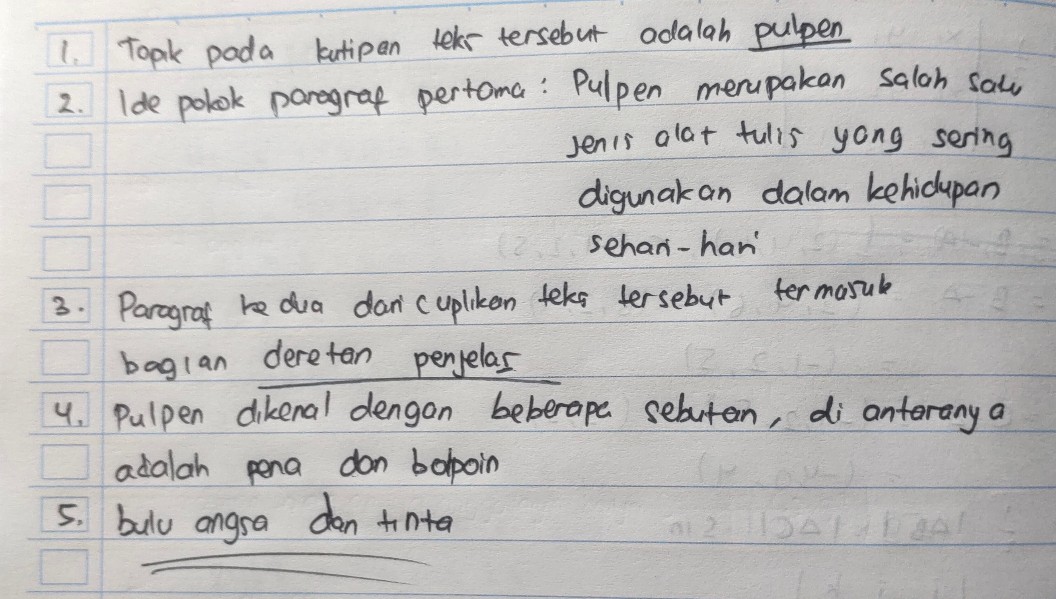 1. Topik pada kutipan teks tersebut adalah pulpen
2. Ide pokok paragraf pertama : Pulpen merupakan salah satu
jenis alat tulis yang sering
digunakan dalam kehidupan
sehari-hari
3. Paragraf kedua dari cuplikan teks tersebut termasuk
bagian deretan penjelas
4. Pulpen dikenal dengan beberapa sebutan, di antaranya
adalah pena dan bolpoin
5. bulu angsa dan tinta